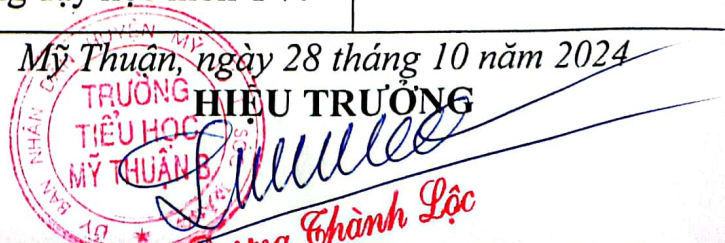 Mỹ Thuận, ngày 28 tháng 10 năm 2024
HIỆU TRƯỞNG
TRƯỜNG
TIỂU HỌC
MỸ THUẬN B
Thành Lộc